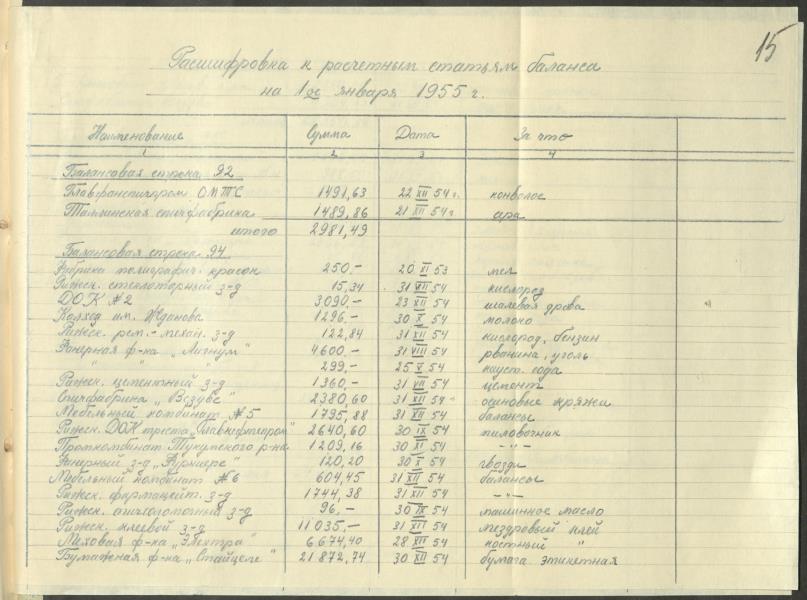 15
Расшифровка к расчетным статьям баланса
на 1ое января 1955 г.
Наименование Сумма Дата За что
1 2 3 4
Балансовая строка 92
Главфанспичпром ОМТС 1491,63 22 XII 54 г.
спичфабрика 1489,86 21 XII 54 г
итого 2981,49
Балансовая строка 94
Фабрика полиграфич. красок 250.- 20 XI 53 мел
Рижск. стеклотарный з-д 15,34 31 VII 54 кислород
ДОК №2 3090.- 23 XII 54 шалевая дрова
Колхоз им. Жданова 1296.- 30 X 54 молоко
Рижск. рем.-механ. з-д 122,84 31 XII 54 кислород, бензин
Фанерная ф-ка „Лигнум" 4600.- 31 VIII 54 рванина, уголь
" " " 299.- 25 X 54 кауст. сода
Рижск. цементный з-д 1360.- 31 VII 54 цемент
Спичфабрика „Вездувс" 2380,60 31 XII 54 осиновые кряжи
Мебельный комбинат №5 1795,88 31 XII 54 балансы
Рижск. ДОК треста „Главнефтепром" 2640,60 30 IX 54 пиловочник
Промкомбинат Тукумского р-на 1209,16 30 XI 54 -"-
Фанерный з-д „Фурниерс" 120,20 30 X 54 гвозди
Мебельный комбинат №6 604,45 31 XII 54 балансы
Рижск. фармацевт. з-д 1744,38 31 XII 54 -"-
Рижск. з-д 96.- 30 IX 54 машинное масло
Рижск. клеевой з-д 11035.- 31 XII 54 мездровый клей
Меховая ф-ка „Электра" 6674,40 28 XII 54 костный "
Бумажная ф-ка „Стайцеле" 21872,74 30 XII 54 бумага этикетная